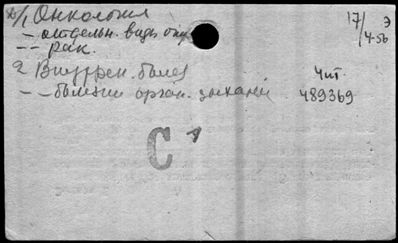 1 Онкология 17/ Э
– отдельн. виды опу 4-56
-- рак.
2 Внутрен. болез Чит
-- болезни орган. дыхания 489369
С